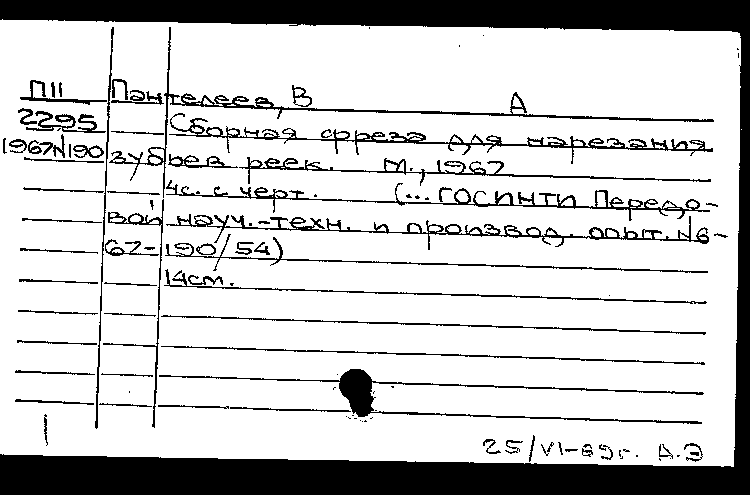 ПII Пантелеев, В А
2295 Сборная фреза для нарезания
1967N190 зубьев реек. М., 1967
4с. с черт. (...ГОСИНТИ Передо-
вой науч.-техн. и производ. опыт. N6-
67-190/54)
14см.
25/VI-89г. А.Э